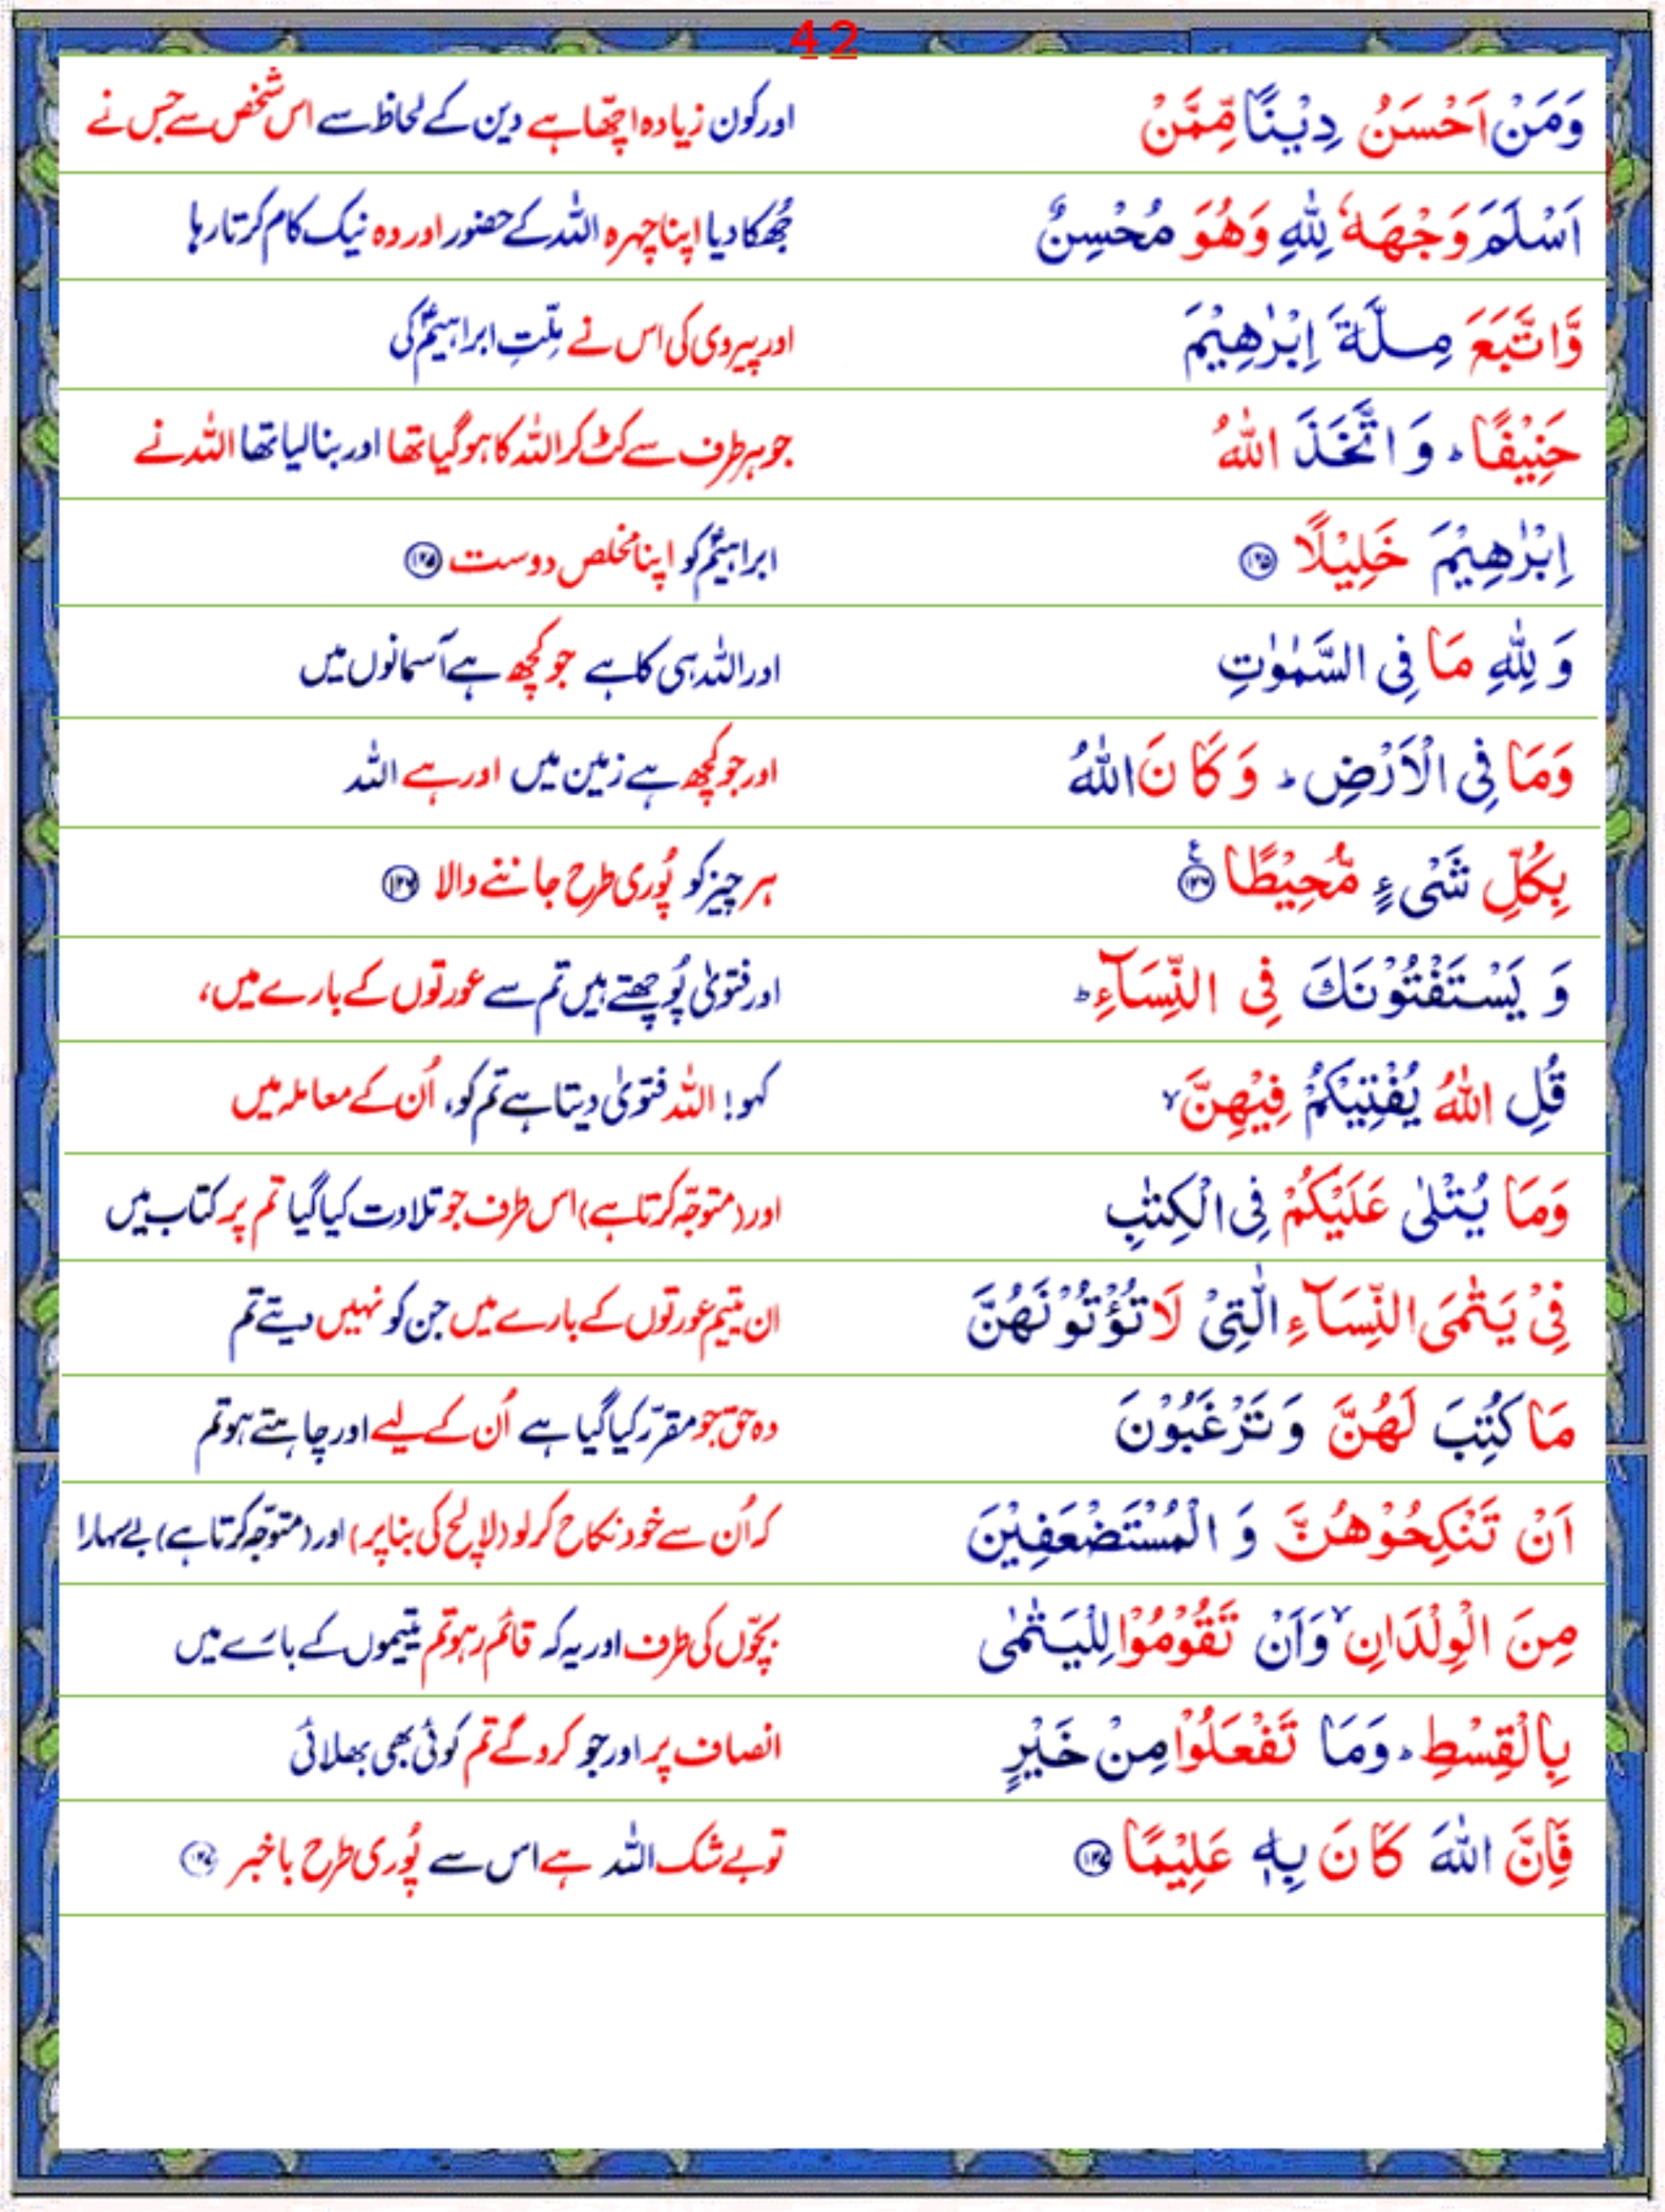 42
وَمَنْ اَحْسَنُ دِيْنًا مِّمَّنْ اور کون زیادہ اچّھا ہے دین کے لحاظ سے اس شخص سے جس نے
اَسْلَمَ وَجْهَهٗ لِلّٰهِ وَهُوَ مُحْسِنٌ جُھکا دیا اپنا چہرہ اللہ کے حضور اور وہ نیک کام کرتا رہا
وَّاتَّبَعَ مِلَّةَ اِبْرٰهِيْمَ اور پیروی کی اس نے مِلّتِ ابراہیمؑ کی
حَنِيْفًا ؕ وَاتَّخَذَ اللّٰهُ جو ہر طرف سے کٹ کر اللہ کا ہو گیا تھا اور بنا لیا تھا اللہ نے
اِبْرٰهِيْمَ خَلِيْلًا ﴿۱۲۵﴾ ابراہیمؑ کو اپنا مخلص دوست ﴿۱۲۵﴾
وَ لِلّٰهِ مَا فِى السَّمٰوٰتِ اور اللہ ہی کا ہے جو کچھ ہے آسمانوں میں
وَمَا فِى الْاَرْضِ ؕ وَكَانَ اللّٰهُ اور جو کچھ ہے زمین میں اور ہے اللہ
بِكُلِّ شَىْءٍ مُّحِيْطًا ﴿۱۲۶﴾ ع ہر چیز کو پُوری طرح جاننے والا ﴿۱۲۶﴾
وَ يَسْتَفْتُوْنَكَ فِى النِّسَآءِ ؕ اور فتویٰ پُوچھتے ہیں تم سے عورتوں کے بارے میں،
قُلِ اللّٰهُ يُفْتِيْكُمْ فِيْهِنَّ ۙ کہو! اللہ فتویٰ دیتا ہے تم کو، اُن کے معاملہ میں
وَمَا يُتْلٰى عَلَيْكُمْ فِى الْكِتٰبِ اور (متوجّہ کرتا ہے) اس طرف جو تلاوت کیا گیا تم پر کتاب میں
فِىْ يَتٰمَى النِّسَآءِ الّٰتِىْ لَا تُؤْتُوْنَهُنَّ ان یتیم عورتوں کے بارے میں جن کو نہیں دیتے تم
مَا كُتِبَ لَهُنَّ وَ تَرْغَبُوْنَ وہ حق جو مقرّر کیا گیا ہے اُن کے لیے اور چاہتے ہو تم
اَنْ تَنْكِحُوْهُنَّ وَ الْمُسْتَضْعَفِيْنَ کہ اُن سے خود نکاح کر لو (لالچ کی بنا پر) اور (متوجّہ کرتا ہے) بے سہارا
مِنَ الْوِلْدَانِ ۙ وَاَنْ تَقُوْمُوْا لِلْيَتٰمٰى بچّوں کی طرف اور یہ کہ قائم رہو تم یتیموں کے بارے میں
بِالْقِسْطِ ؕ وَمَا تَفْعَلُوْا مِنْ خَيْرٍ انصاف پر اور جو کرو گے تم کوئی بھی بھلائی
فَاِنَّ اللّٰهَ كَانَ بِهٖ عَلِيْمًا ﴿۱۲۷﴾ تو بے شک اللہ ہے اس سے پُوری طرح باخبر ﴿۱۲۷﴾